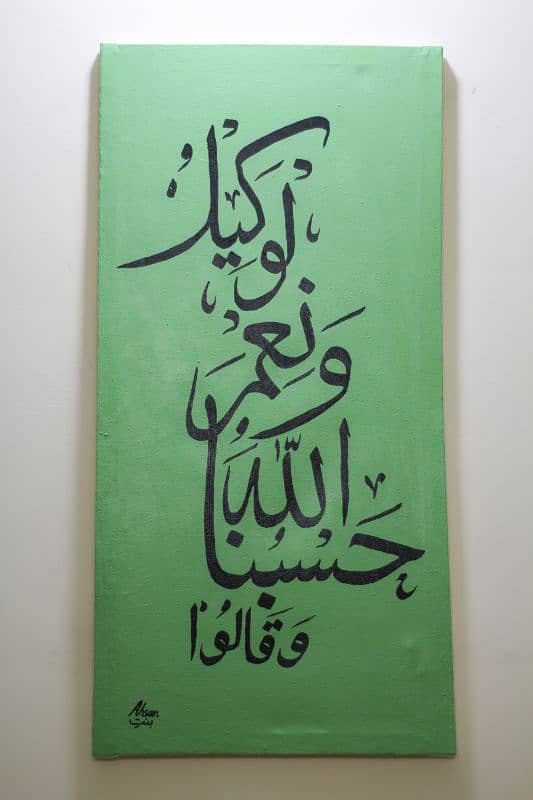 وَقَالُوْا
حَسْبُنَا
اللّٰهُ
وَنِعْمَ
لْوَكِيْلُ
Ahsan